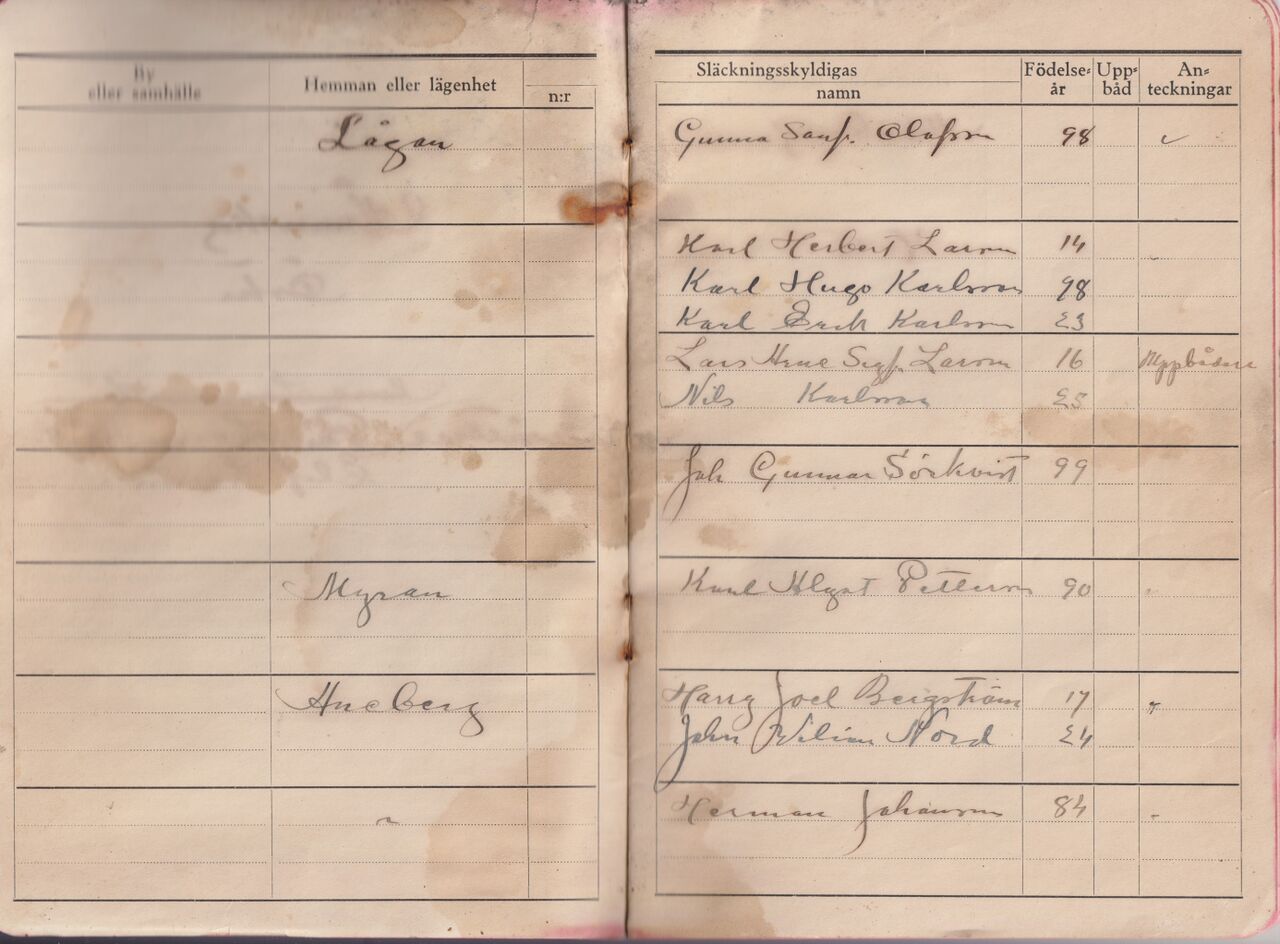 By
eller samhälle
Hemman eller lägenhet
n:r
Släckningsskyldigas
namn
Födelse-
år
Upp-
båd
An-
teckningar
Lågan
Gunna Olofsson 98
Karl Herbert Larson 14
Karl Hugo Karlsson 98
Karl Erik Karlsson 23
Lars Arne Larson 16
Nils Karlsson 25
Joh Gunnar Sörkvist 99
Myran
Karl Algot Petterson 90
Harry Joel Bergström 17 "
John Nord 24
"
Herman Johanson 84 "